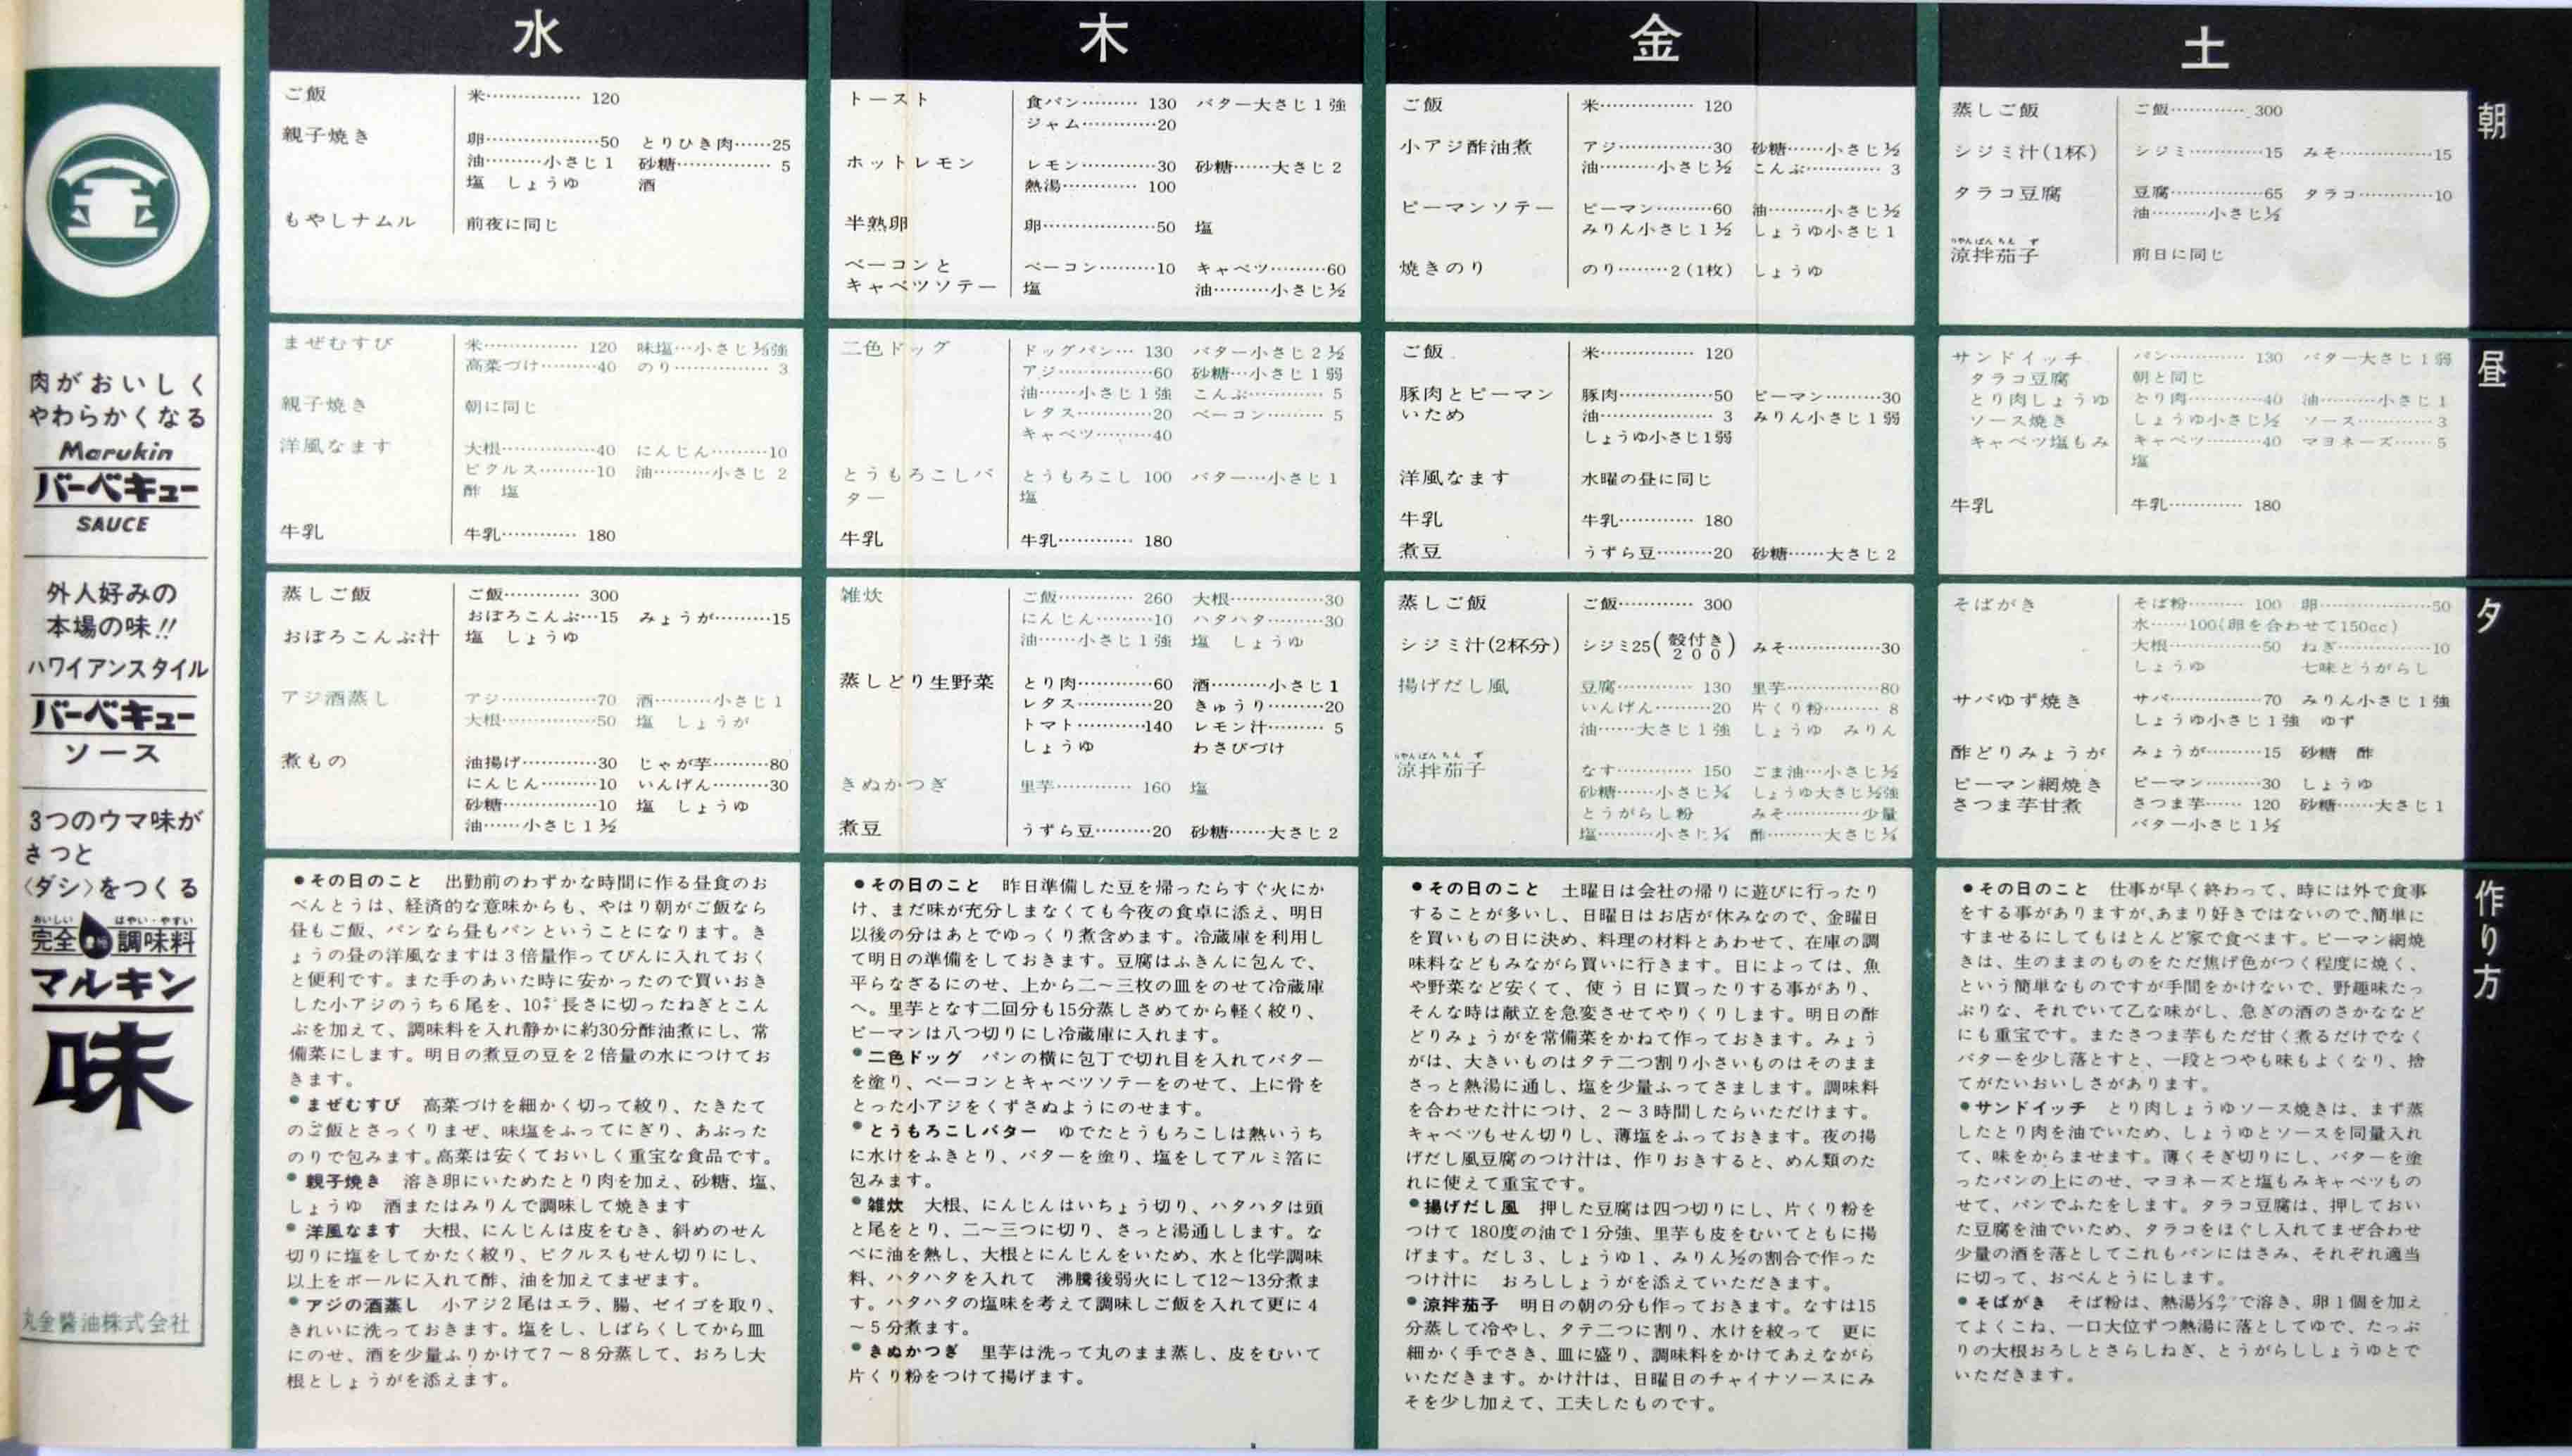 肉がおいしく
やわらかくなる
Marukin
バーベキュー
SAUCE
外人好みの
本場の味!!
ハワイアンスタイル
バーベキュー
ソース
3つのウマ味が
さっと
〈ダシ〉をつくる
おいしい はやい・やすい
完全 調味料
マルキン
味
丸金醤油株式会社
水
ご飯 米…………… 120
親子焼き 卵………………50 とりひき肉……25
油………小さじ1 砂糖…………… 5
塩 しょうゆ 酒
もやしナムル 前夜に同じ
まぜむすび 米…………… 120 味塩…小さじ⅓強
高菜づけ………40 のり…………… 3
親子焼き 朝に同じ
洋風なます 大根……………40 にんじん………10
ピクルス………10 油………小さじ 2
酢 塩
牛乳 牛乳………… 180
蒸しご飯 ご飯………… 300
おぼろこんぶ…15 みょうが………15
おぼろこんぶ汁 塩 しょうゆ
アジ酒蒸し アジ……………70 酒………小さじ1
大根……………50 塩 しょうが
煮もの 油揚げ…………30 じゃが芋………80
にんじん………10 いんげん………30
砂糖……………10 塩 しょうゆ
油……小さじ1½
●その日のこと 出勤前のわずかな時間に作る昼食のお
べんとうは、経済的な意味からも、やはり朝がご飯なら
昼もご飯、パンなら昼もパンということになります。き
ょうの昼の洋風なますは3倍量作ってびんに入れておく
と便利です。また手のあいた時に安かったので買いおき
した小アジのうち6尾を、10㌢長さに切ったねぎとこん
ぶを加えて、調味料を入れ静かに約30分酢油煮にし、常
備菜にします。明日の煮豆の豆を2倍量の水につけてお
きます。
●まぜむすび 高菜づけを細かく切って絞り、たきたて
のご飯とさっくりまぜ、味塩をふってにぎり、あぶった
のりで包みます。高菜は安くておいしく重宝な食品です。
●親子焼き 溶き卵にいためたとり肉を加え、砂糖、塩、
しょうゆ 酒またはみりんで調味して焼きます
●洋風なます 大根、にんじんは皮をむき、斜めのせん
切りに塩をしてかたく絞り、ピクルスもせん切りにし、
以上をボールに入れて酢、油を加えてまぜます。
●アジの酒蒸し 小アジ2尾はエラ、腸、ゼイゴを取り、
きれいに洗っておきます。塩をし、しばらくしてから皿
にのせ、酒を少量ふりかけて7〜8分蒸して、おろし大
根としょうがを添えます。
木
トースト 食パン……… 130 バター大さじ1強
ジャム…………20
ホットレモン レモン…………30 砂糖……大さじ2
熱湯………… 100
半熟卵 卵………………50 塩
ベーコンと ベーコン………10 キャベツ………60
キャベツソテー 塩 油………小さじ½
二色ドッグ ドッグパン… 130 バター小さじ2½
アジ……………60 砂糖…小さじ1弱
油……小さじ1強 こんぶ………… 5
レタス…………20 ベーコン……… 5
キャベツ………40
とうもろこしバ とうもろこし 100 バター…小さじ1
ター 塩
牛乳 牛乳………… 180
雑炊 ご飯………… 260 大根……………30
にんじん………10 ハタハタ………30
油……小さじ1強 塩 しょうゆ
蒸しどり生野菜 とり肉…………60 酒………小さじ1
レタス…………20 きゅうり………20
トマト…………140 レモン汁……… 5
しょうゆ わさびづけ
きぬかつぎ 里芋………… 160 塩
煮豆 うずら豆………20 砂糖……大さじ2
●その日のこと 昨日準備した豆を帰ったらすぐ火にか
け、まだ味が充分しまなくても今夜の食卓に添え、明日
以後の分はあとでゆっくり煮含めます。冷蔵庫を利用し
て明日の準備をしておきます。豆腐はふきんに包んで、
平らなざるにのせ、上から二〜三枚の皿をのせて冷蔵庫
へ。里芋となす二回分も15分蒸しさめてから軽く絞り、
ピーマンは八つ切りにし冷蔵庫に入れます。
●二色ドッグ パンの横に包丁で切れ目を入れてバター
を塗り、ベーコンとキャベツソテーをのせて、上に骨を
とった小アジをくずさぬようにのせます。
●とうもろこしバター ゆでたとうもろこしは熱いうち
に水けをふきとり、バターを塗り、塩をしてアルミ箔に
包みます。
●雑炊 大根、にんじんはいちょう切り、ハタハタは頭
と尾をとり、二〜三つに切り、さっと湯通しします。な
べに油を熱し、大根とにんじんをいため、水と化学調味
料、ハタハタを入れて 沸騰後弱火にして12〜13分煮ま
す。ハタハタの塩味を考えて調味しご飯を入れて更に4
〜5分煮ます。
●きぬかつぎ 里芋は洗って丸のまま蒸し、皮をむいて
片くり粉をつけて揚げます。
金
ご飯 米…………… 120
小アジ酢油煮 アジ……………30 砂糖……小さじ½
油………小さじ½ こんぶ………… 3
ピーマンソテー ピーマン………60 油………小さじ½
みりん小さじ1½ しょうゆ小さじ1
焼きのり のり………2(1枚) しょうゆ
ご飯 米…………… 120
豚肉とピーマン 豚肉……………50 ピーマン………30
いため 油……………… 3 みりん小さじ1弱
しょうゆ小さじ1弱
洋風なます 水曜の昼に同じ
牛乳 牛乳………… 180
煮豆 うずら豆………20 砂糖……大さじ2
蒸しご飯 ご飯………… 300
シジミ汁(2杯分) シジミ25(殻付き200) みそ……………30
揚げだし風 豆腐………… 130 里芋……………80
いんげん………20 片くり粉……… 8
油……大さじ1強 しょうゆ みりん
りゃんばんちえず
涼拌茄子 なす………… 150 ごま油…小さじ½
砂糖……小さじ¼ しょうゆ大さじ½強
とうがらし粉 みそ…………少量
塩………小さじ¼ 酢………大さじ¼
●その日のこと 土曜日は会社の帰りに遊びに行ったり
することが多いし、日曜日はお店が休みなので、金曜日
を買いもの日に決め、料理の材料とあわせて、在庫の調
味料などもみながら買いに行きます。日によっては、魚
や野菜など安くて、使う日に買ったりする事があり、
そんな時は献立を急変させてやりくりします。明日の酢
どりみょうがを常備菜をかねて作っておきます。みょう
がは、大きいものはタテ二つ割り小さいものはそのまま
さっと熱湯に通し、塩を少量ふってさまします。調味料
を合わせた汁につけ、2〜3時間したらいただけます。
キャベツもせん切りし、薄塩をふっておきます。夜の揚
げだし風豆腐のつけ汁は、作りおきすると、めん類のた
れに使えて重宝です。
●揚げだし風 押した豆腐は四つ切りにし、片くり粉を
つけて 180度の油で1分強、里芋も皮をむいてともに揚
げます。だし3、しょうゆ1、みりん½の割合で作った
つけ汁に おろししょうがを添えていただきます。
●涼拌茄子 明日の朝の分も作っておきます。なすは15
分蒸して冷やし、タテ二つに割り、水けを絞って 更に
細かく手でさき、皿に盛り、調味料をかけてあえながら
いただきます。かけ汁は、日曜日のチャイナソースにみ
そを少し加えて、工夫したものです。
土
蒸しご飯 ご飯………… 300
シジミ汁(1杯) シジミ…………15 みそ……………15
タラコ豆腐 豆腐……………65 タラコ…………10
油………小さじ½
りやんばんちえず
涼拌茄子 前日に同じ
サンドイッチ パン………… 130 バター大さじ1弱
タラコ豆腐 朝と同じ
とり肉しょうゆ とり肉…………40 油………小さじ1
ソース焼き しょうゆ小さじ½ ソース………… 3
キャベツ塩もみ キャベツ………40 マヨネーズ…… 5
塩
牛乳 牛乳………… 180
そばがき そば粉……… 100 卵………………50
水……100(卵を合わせて150cc)
大根……………50 ねぎ……………10
しょうゆ 七味とうがらし
サバゆず焼き サバ……………70 みりん小さじ1強
しょうゆ小さじ1強 ゆず
酢どりみょうが みょうが………15 砂糖 酢
ピーマン網焼き ピーマン………30 しょうゆ
さつま芋甘煮 さつま芋…… 120 砂糖……大さじ1
バター小さじ1½
●その日のこと 仕事が早く終わって、時には外で食事
をする事がありますが、あまり好きではないので、簡単に
すませるにしてもほとんど家で食べます。ピーマン網焼
きは、生のままのものをただ焦げ色がつく程度に焼く、
という簡単なものですが手間をかけないで、野趣味たっ
ぷりな、それでいて乙な味がし、急ぎの酒のさかななど
にも重宝です。またさつま芋もただ甘く煮るだけでなく
バターを少し落とすと、一段とつやも味もよくなり、捨
てがたいおいしさがあります。
●サンドイッチ とり肉しょうゆソース焼きは、まず蒸
したとり肉を油でいため、しょうゆとソースを同量入れ
て、味をからませます。薄くそぎ切りにし、バターを塗
ったパンの上にのせ、マヨネーズと塩もみキャベツもの
せて、パンでふたをします。タラコ豆腐は、押しておい
た豆腐を油でいため、タラコをほぐし入れてまぜ合わせ
少量の酒を落としてこれもパンにはさみ、それぞれ適当
に切って、おべんとうにします。
●そばがき そば粉は、熱湯½㌍で溶き、卵1個を加え
てよくこね、一口大位ずつ熱湯に落としてゆで、たっぷ
りの大根おろしとさらしねぎ、とうがらししょうゆとで
いただきます。
朝
昼
夕
作り方